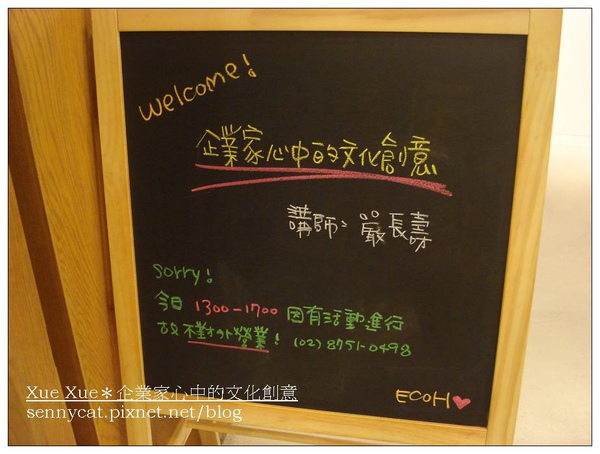 welcome!
企業家心中的文化創意
講師: 嚴長壽
sorry!
今日 1300-1700 因有活動進行
故不對外營業! (02) 8751-0498
ECOH
Xue Xue＊企業家心中的文化創意
sennycat.pixnet.net/blog